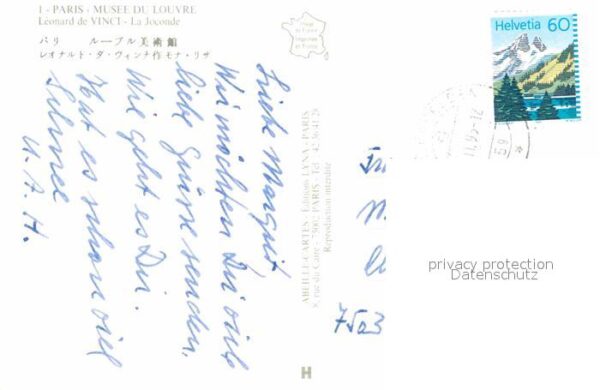 1 - PARIS - MUSÉE DU LOUVRE
Léonard de VINCI - La Joconde
パリ ルーブル美術館
レオナルト・ダ・ヴィンチ作モナ・リザ
Image de France
Helvetia 60
Liebe Margrit
Wir möchten Dir viele
liebe Grüsse senden.
Wie geht es Dir.
Hat es schon viel
Schnee
U. A. H.
ABEILLE-CARTES - Éditions LYNA - PARIS
8, rue du Caire - 75002 PARIS - Tél. 42.36.41.28
Reproduction interdite
privacy protection
Datenschutz
H